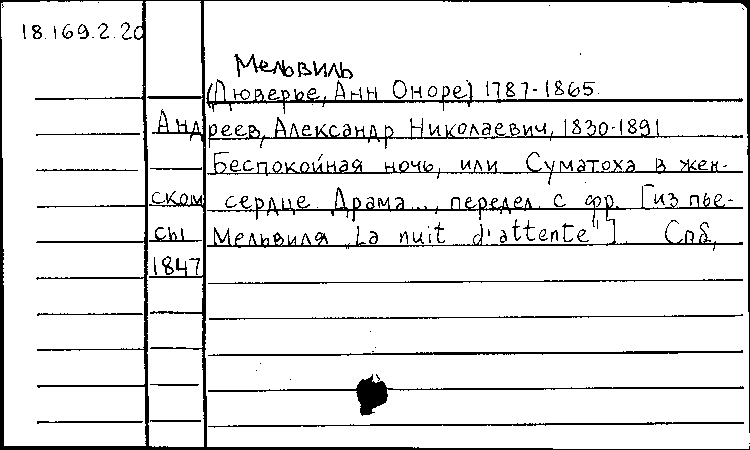 18.169.2.20
Мельвиль
(Дюверье, Анн Оноре) 1787-1865.
Андреев, Александр Николаевич, 1830-1891
Беспокойная ночь, или Суматоха в жен-
ском сердце Драма..., передел с фр. [из пье-
сы Мельвиля „La nuit d'attente"]. Спб,
1847